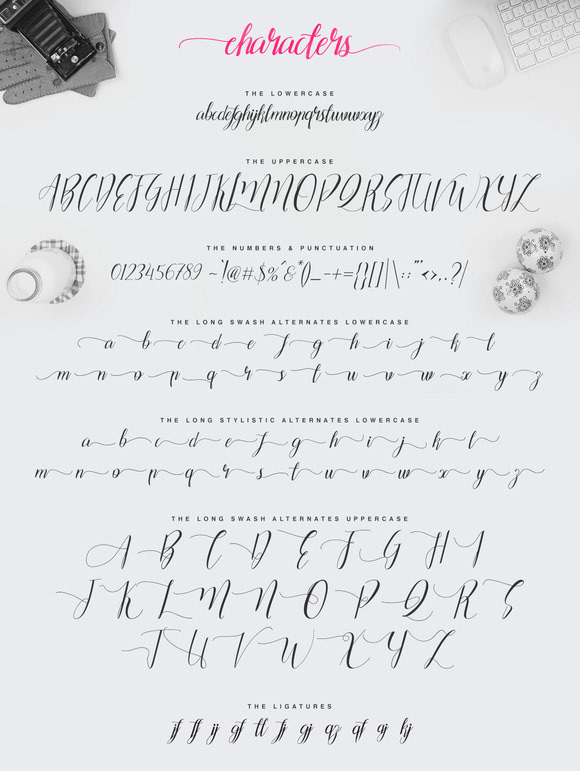 characters
THE LOWERCASE
abcdefghijklmnopqrstuvwxyz
THE UPPERCASE
ABCDEFGHIJKLMNOPQRSTUVWXYZ
THE NUMBERS & PUNCTUATION
0123456789 ~`!@#$%^&*()_-+={}[]|\:;"'<>,.?/
THE LONG SWASH ALTERNATES LOWERCASE
a b c d e f g h i j k l
m n o p q r s t u v w x y z
THE LONG STYLISTIC ALTERNATES LOWERCASE
a b c d e f g h i j k l
m n o p q r s t u v w x y z
THE LONG SWASH ALTERNATES UPPERCASE
A B C D E F G H I
J K L M N O P Q R S
T U V W X Y Z
THE LIGATURES